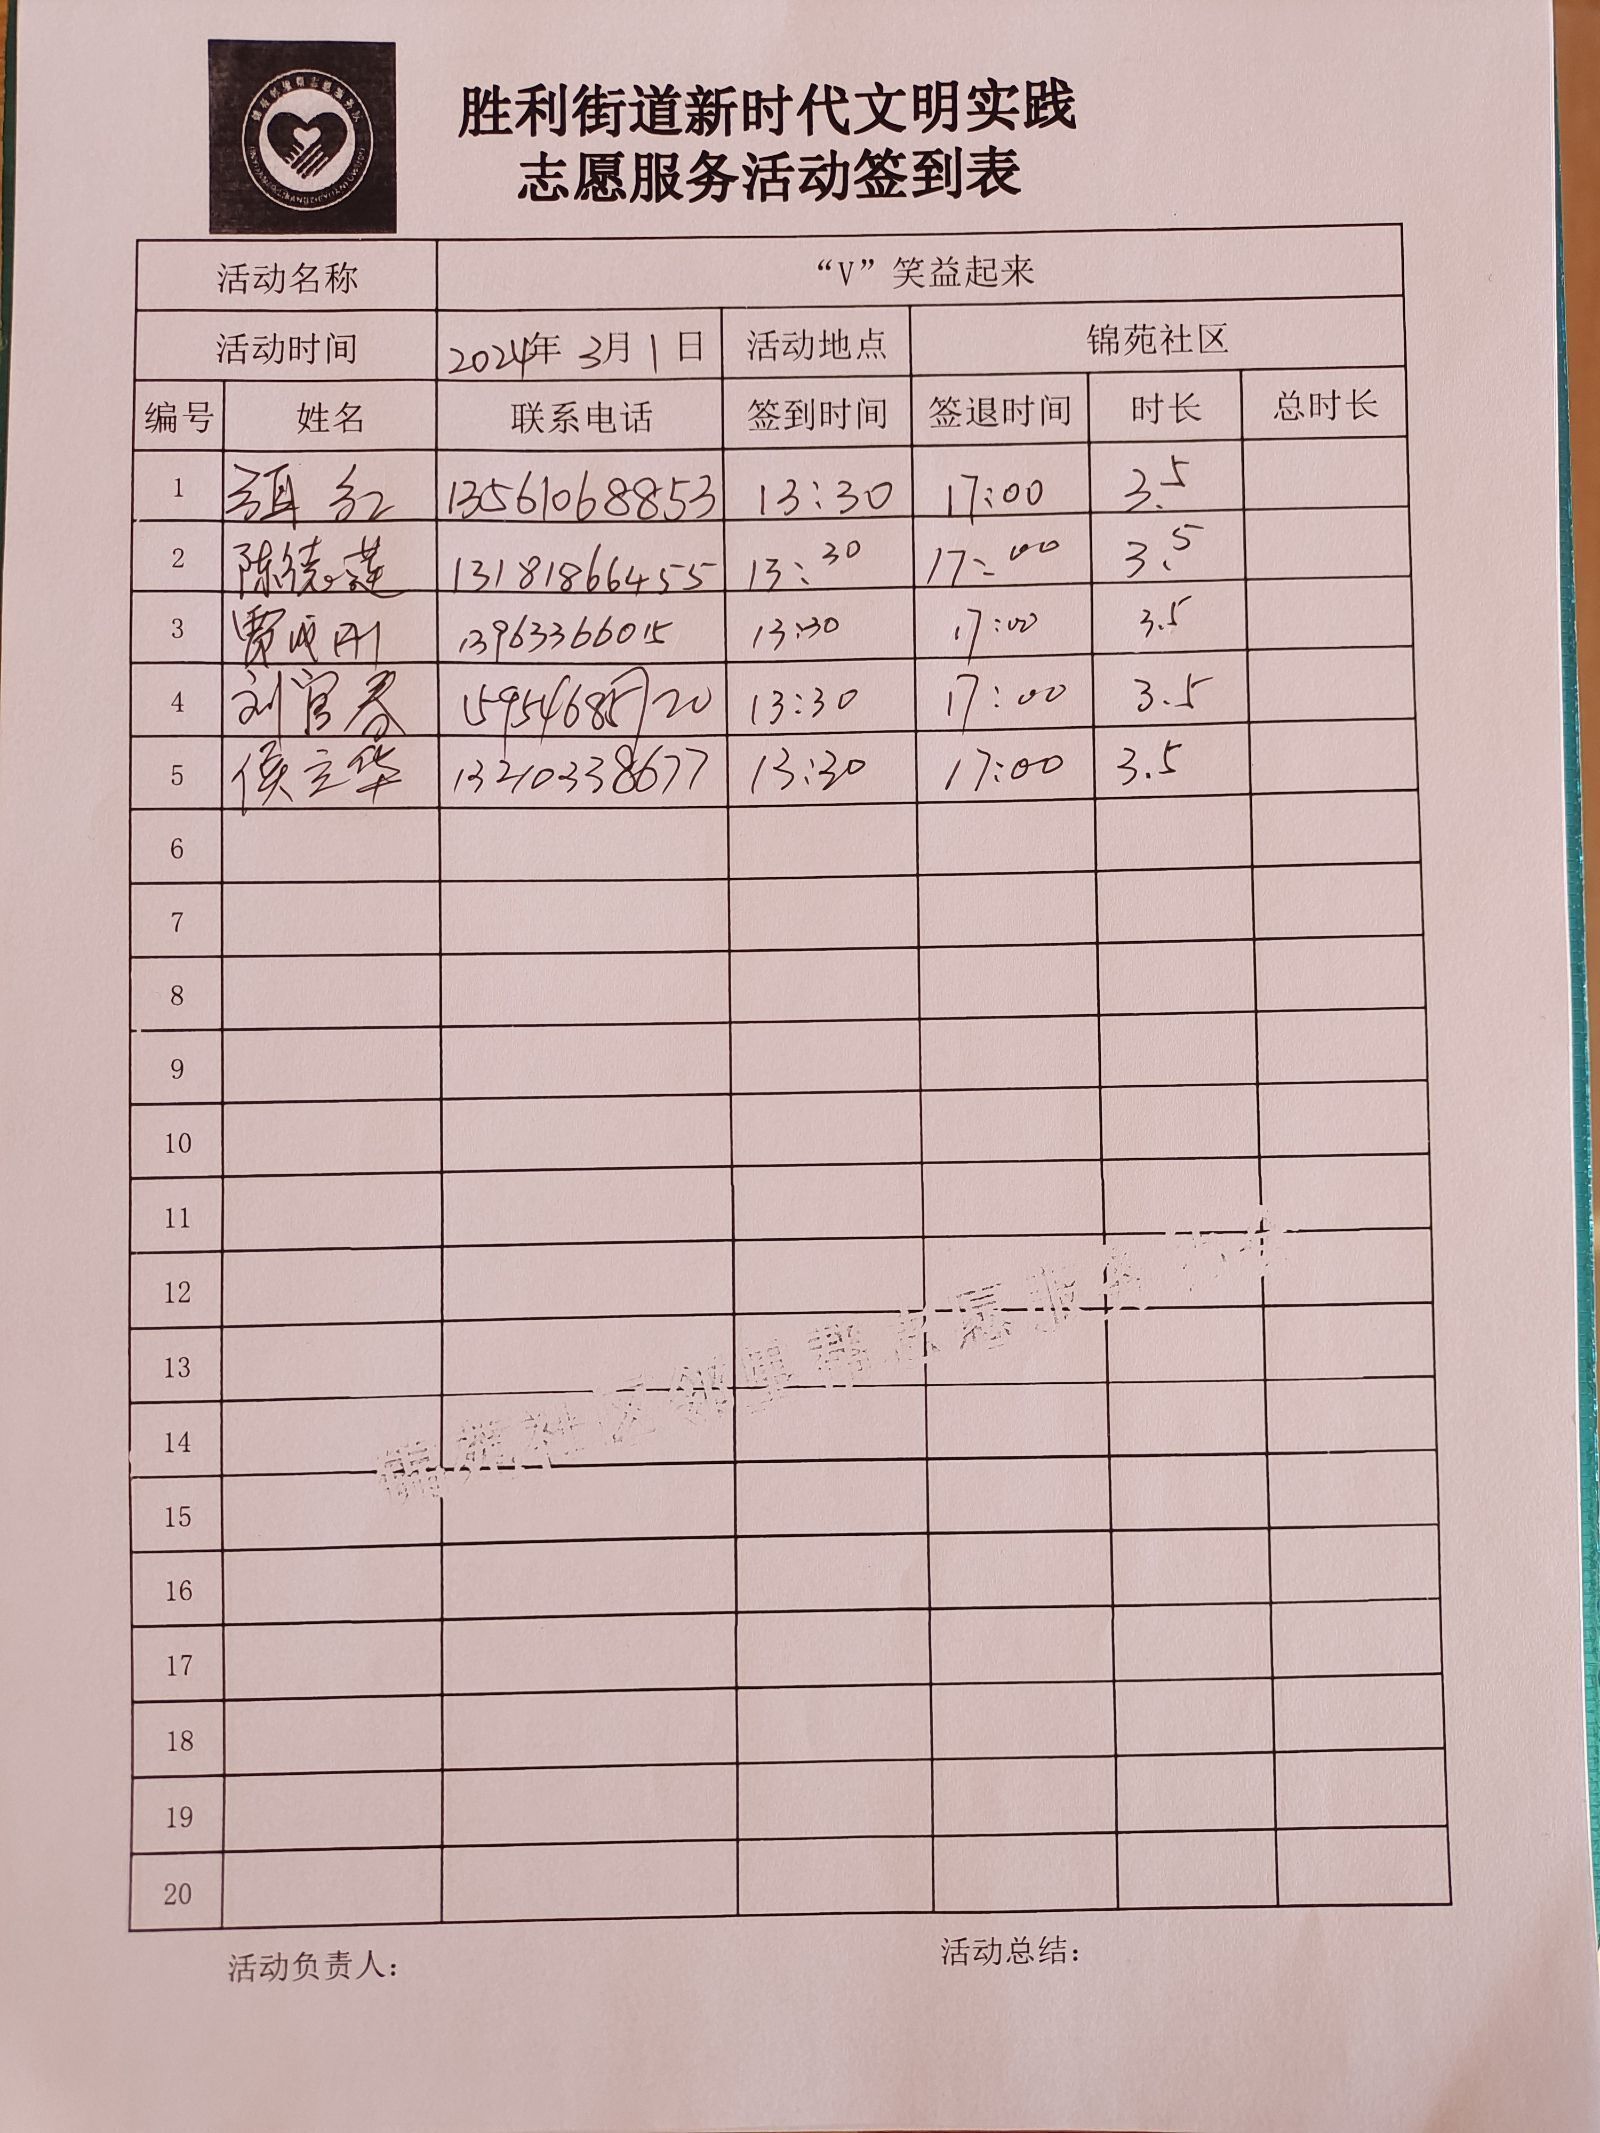 胜利街道新时代文明实践
志愿服务活动签到表
活动名称 “V”笑益起来
活动时间 2024年 3月1日 活动地点 锦苑社区
编号 姓名 联系电话 签到时间 签退时间 时长 总时长
1 红 13561068853 13:30 17:00 3.5
2 陈德莲 13181866455 13:30 17:00 3.5
3 贾成刚 13963366015 13:30 17:00 3.5
4 刘官春 13:30 17:00 3.5
5 侯立华 13210338677 13:30 17:00 3.5
6
7
8
9
10
11
12
13
14
15
16
17
18
19
20
锦苑社区邻里帮志愿服务
活动负责人：
活动总结：